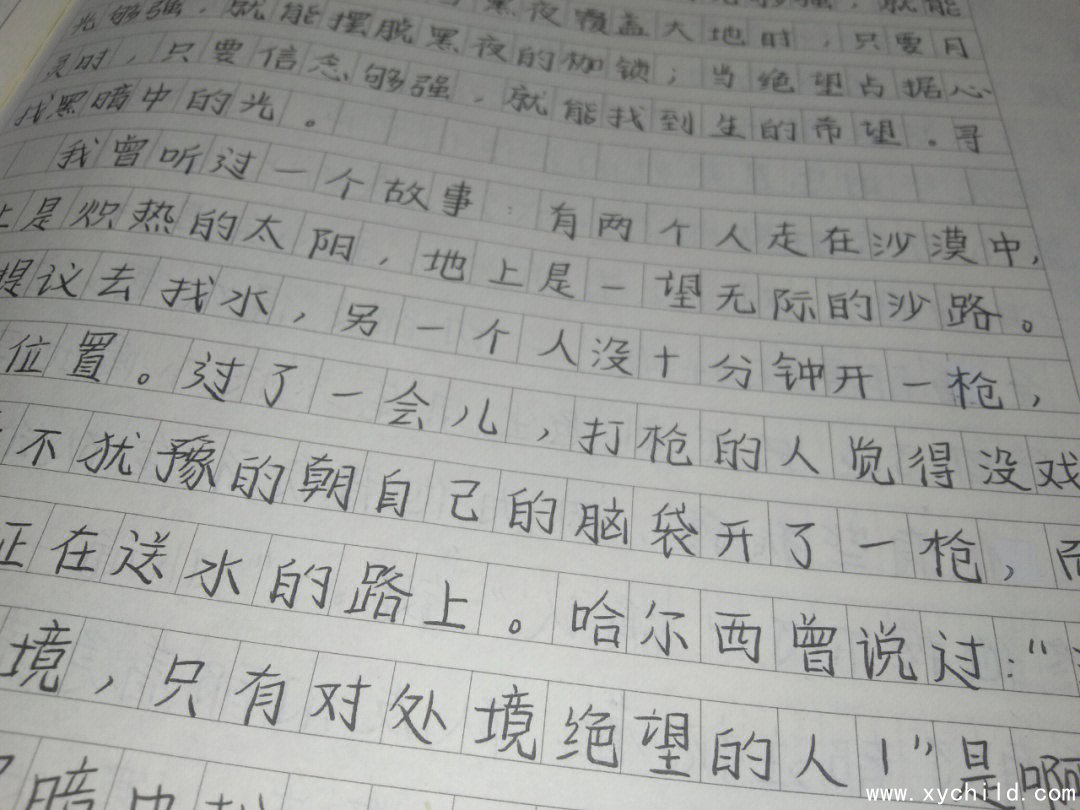 光够强，就能摆脱黑夜的枷锁；当绝望占据心
灵时，只要信念够强，就能找到生的希望。寻
找黑暗中的光。
我曾听过一个故事：有两个人走在沙漠中，
上是炽热的太阳，地上是一望无际的沙路。
提议去找水，另一个人没十分钟开一枪，
位置。过了一会儿，打枪的人觉得没戏
不犹豫的朝自己的脑袋开了一枪，而
正在送水的路上。哈尔西曾说过：“
境，只有对处境绝望的人！”是啊
暗中
www.xychild.com